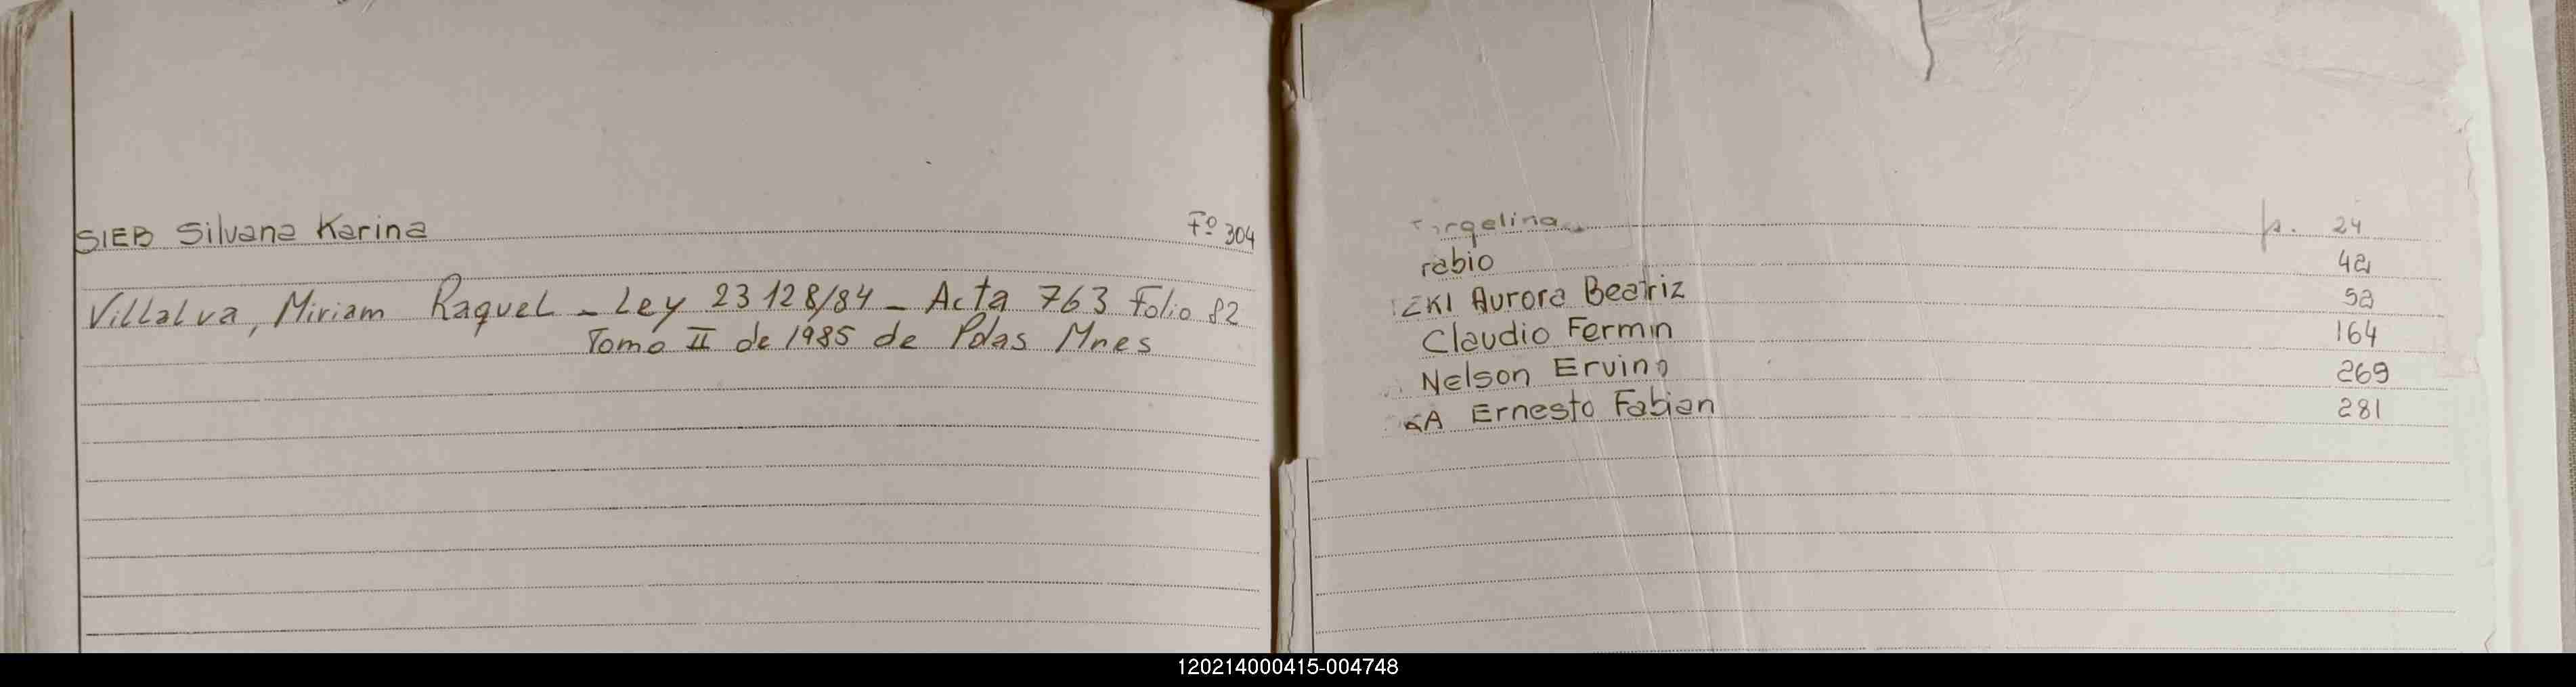 SIEB Silvana Karina Fº 304
Villalva, Miriam Raquel - Ley 23128/84 - Acta 763 Folio 82
Tomo II de 1985 de Pdas Mnes
24
42
Aurora Beatriz 52
Claudio Fermin 164
Nelson Ervino 269
Ernesto Fabian 281
120214000415-004748